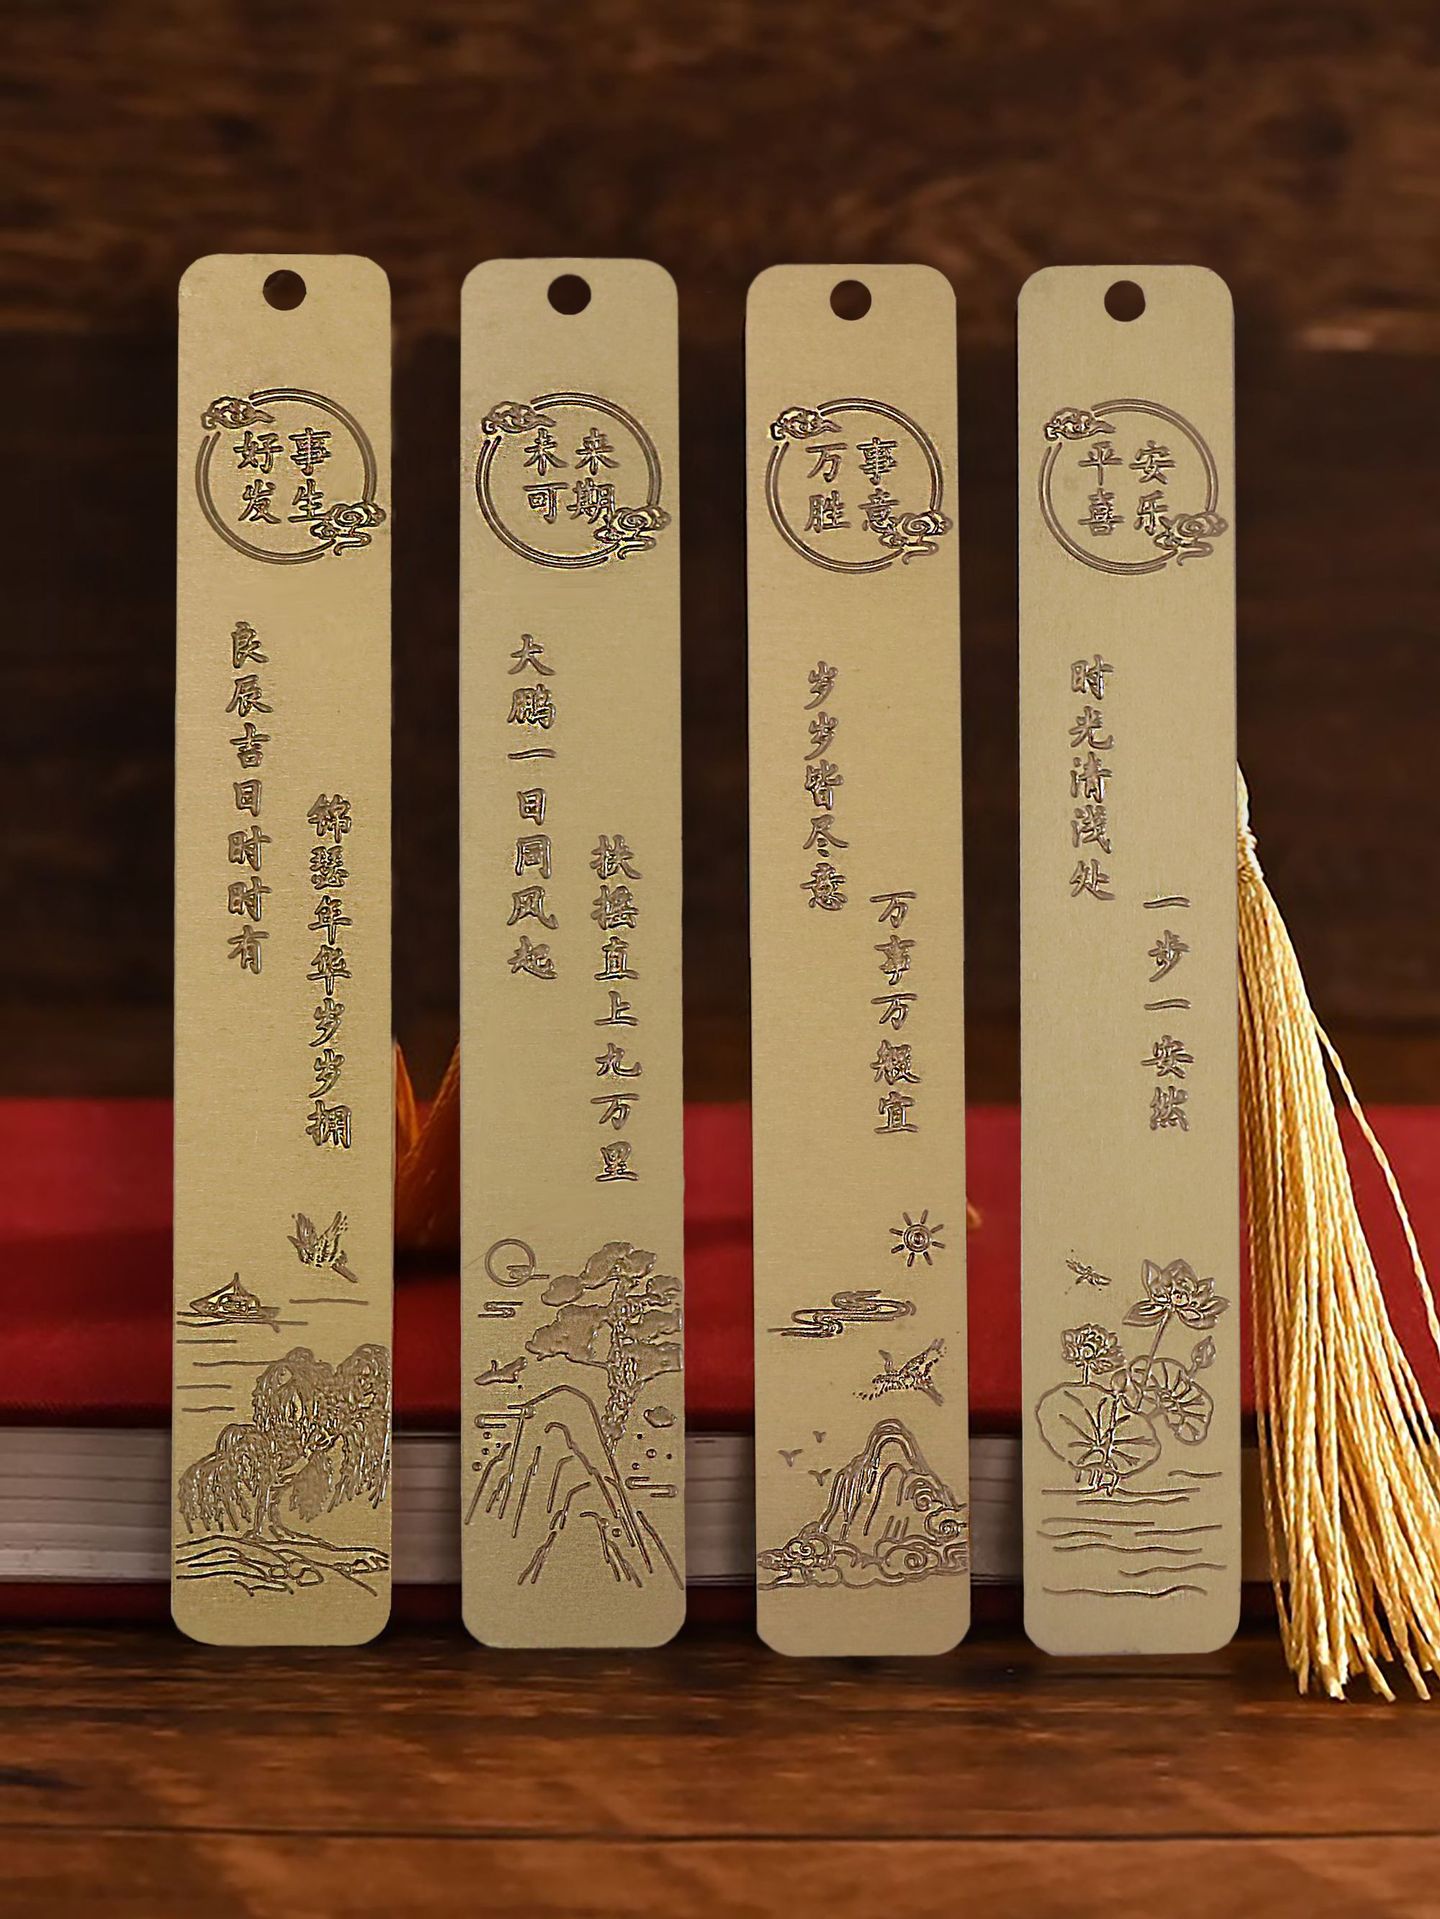 好事
发生
良辰吉日时时有
锦瑟年华岁岁拥
未来
可期
大鹏一日同风起
扶摇直上九万里
万事
胜意
岁岁皆尽意
万事万般宜
平安
喜乐
时光清浅处
一步一安然